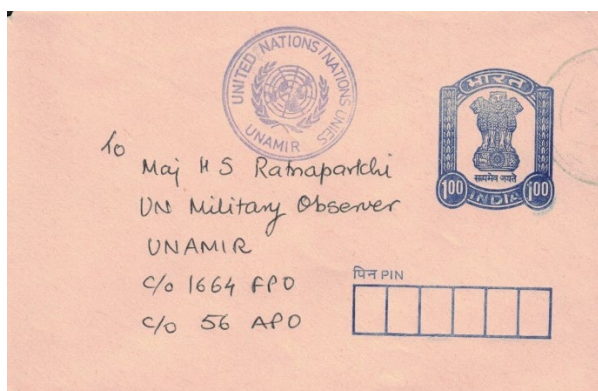 UNITED NATIONS/NATIONS UNIES
UNAMIR
भारत
सत्यमेव जयते
1.00 INDIA 1.00
To
Maj H S Ratnaparkhi
UN Military Observer
UNAMIR
c/o 1664 FPO
c/o 56 APO
पिन PIN